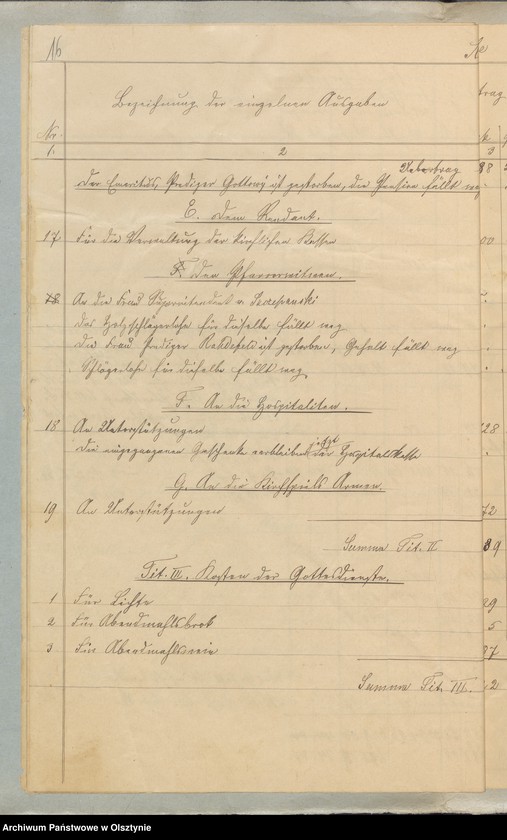 16
Re
trag
Bezeichnung der einzelnen Ausgaben
Nr.
1. 2 3
Uebertrag 88
Der Emeritus, Prediger Gottowy ist gestorben, die Pension fällt weg
E. Dem Rendant.
17 Für die Verwaltung der kirchlichen Kassen 00
F. Den Pfarrerwitwen.
18 An die Frau Superintendent v. Szczepanski
das Holzschlägerlohn für dieselbe fällt weg
Die Frau Prediger ist gestorben, Gehalt fällt weg
Schlägerlohn für dieselbe fällt weg.
F. An die Hospitaliten.
18 An Unterstützungen 28
Die eingegangenen Geschenke verbleiben jetzt der Hospitalkasse
G. An die Kirchspiels Armen.
19 An Unterstützungen 72
Summa Tit. II 89
Tit. III. Kosten des Gottesdienstes.
1 Für Lichte 29
2 Für Abendmahlsbrot 5
3 Für Abendmahlswein 87
Summa Tit. III. 2
Archiwum Państwowe w Olsztynie